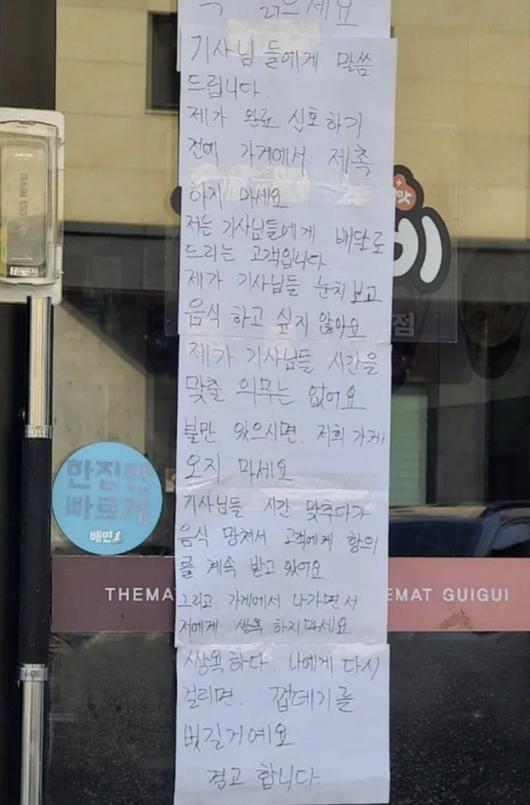 꼭 읽으세요
기사님들에게 말씀
드립니다.
제가 완료 신호하기
전에 가게에서 제촉
하지 마세요
저는 기사님들에게 배달료
드리는 고객입니다.
제가 기사님들 눈치보고
음식하고 싶지 않아요
제가 기사님들 시간을
맞출 의무는 없어요
불만 있으시면. 저희 가게
오지 마세요
기사님들 시간 맞추다가
음식 망쳐서 고객에게 항의
를 계속 받고 있어요
그리고. 가게에서 나가면서
저에게 쌍욕 하지마세요
쌍욕하다. 나에게 다시
걸리면. 껍데기를
벗길거예요
경고 합니다.
맛
점
한집만
빠르게
배민
THEMAT
EMAT GUIGUI